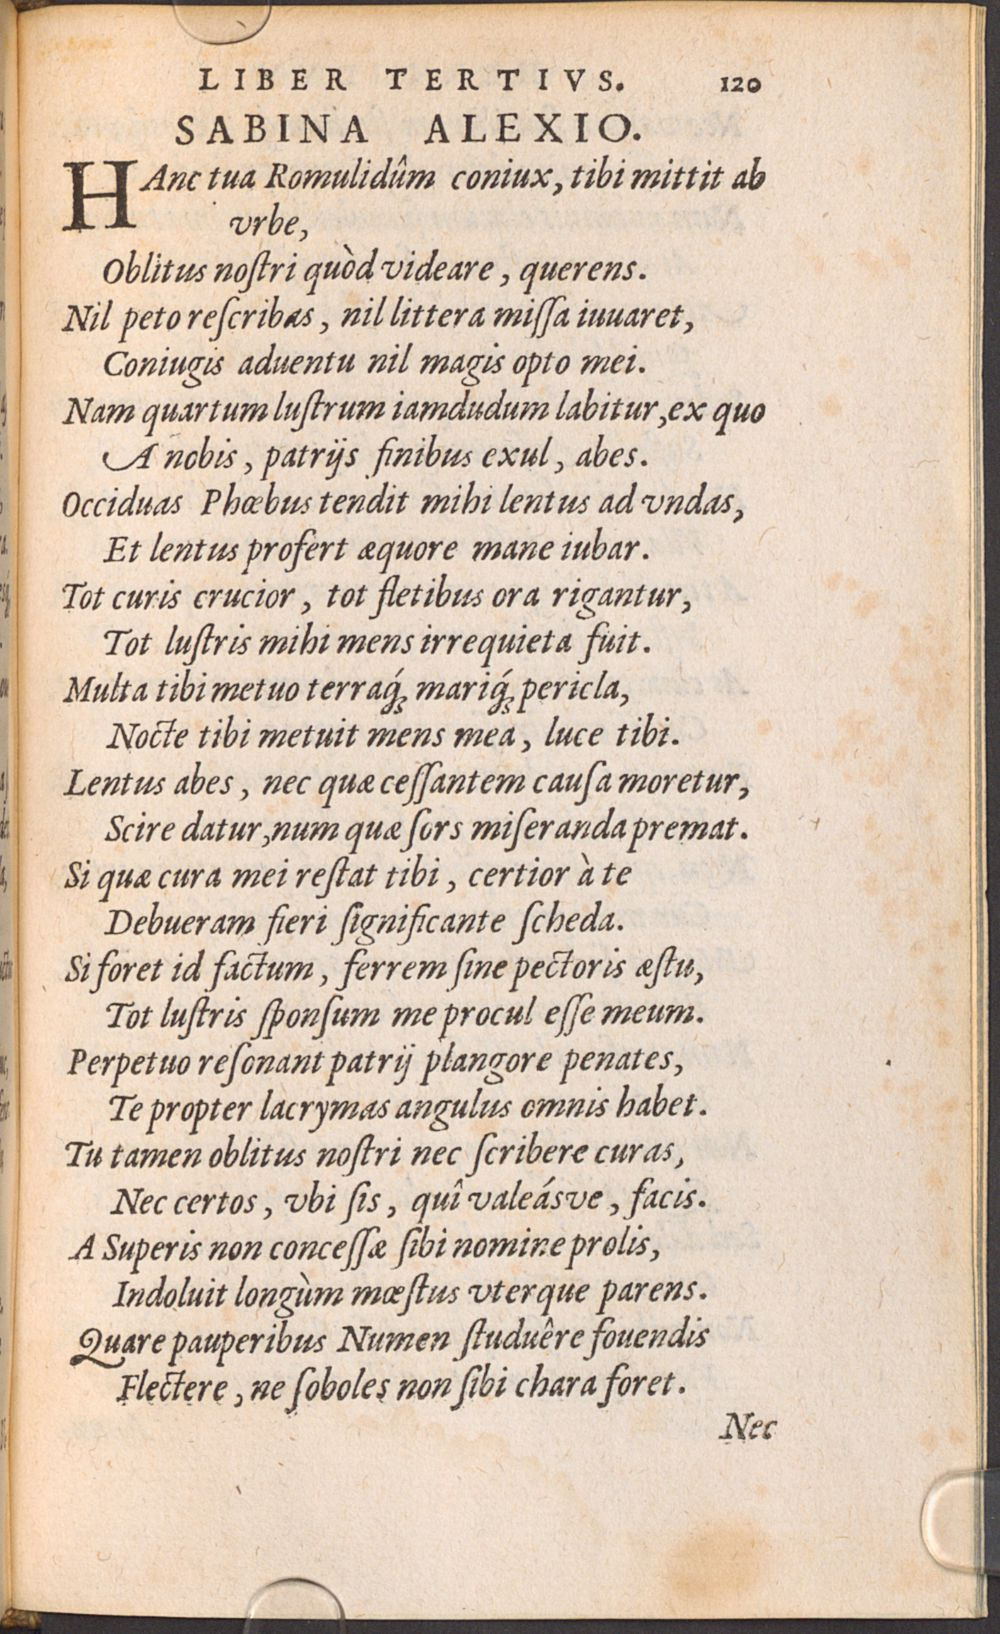 LIBER TERTIVS. 120
SABINA ALEXIO.
HAnc tua Romulidûm coniux, tibi mittit ab
vrbe,
Oblitus noſtri quòd videare, querens.
Nil peto reſcribas, nil littera miſſa iuuaret,
Coniugis aduentu nil magis opto mei.
Nam quartum luſtrum iamdudum labitur, ex quo
A nobis, patrijs finibus exul, abes.
Occiduas Phœbus tendit mihi lentus ad vndas,
Et lentus profert æquore mane iubar.
Tot curis crucior, tot fletibus ora rigantur,
Tot luſtris mihi mens irrequieta fuit.
Multa tibi metuo terraq́; mariq́; pericla,
Nocte tibi metuit mens mea, luce tibi.
Lentus abes, nec quæ ceſſantem cauſa moretur,
Scire datur, num quæ ſors miſeranda premat.
Si quæ cura mei reſtat tibi, certior à te
Debueram fieri ſignificante ſcheda.
Si foret id factum, ferrem ſine pectoris æſtu,
Tot luſtris ſponſum me procul eſſe meum.
Perpetuo reſonant patrij plangore penates,
Te propter lacrymas angulus omnis habet.
Tu tamen oblitus noſtri nec ſcribere curas,
Nec certos, vbi ſis, quî valeásve, facis.
A Superis non conceſſæ ſibi nomine prolis,
Indoluit longùm mœſtus vterque parens.
Quare pauperibus Numen ſtuduêre fouendis
Flectere, ne ſoboles non ſibi chara foret.
Nec